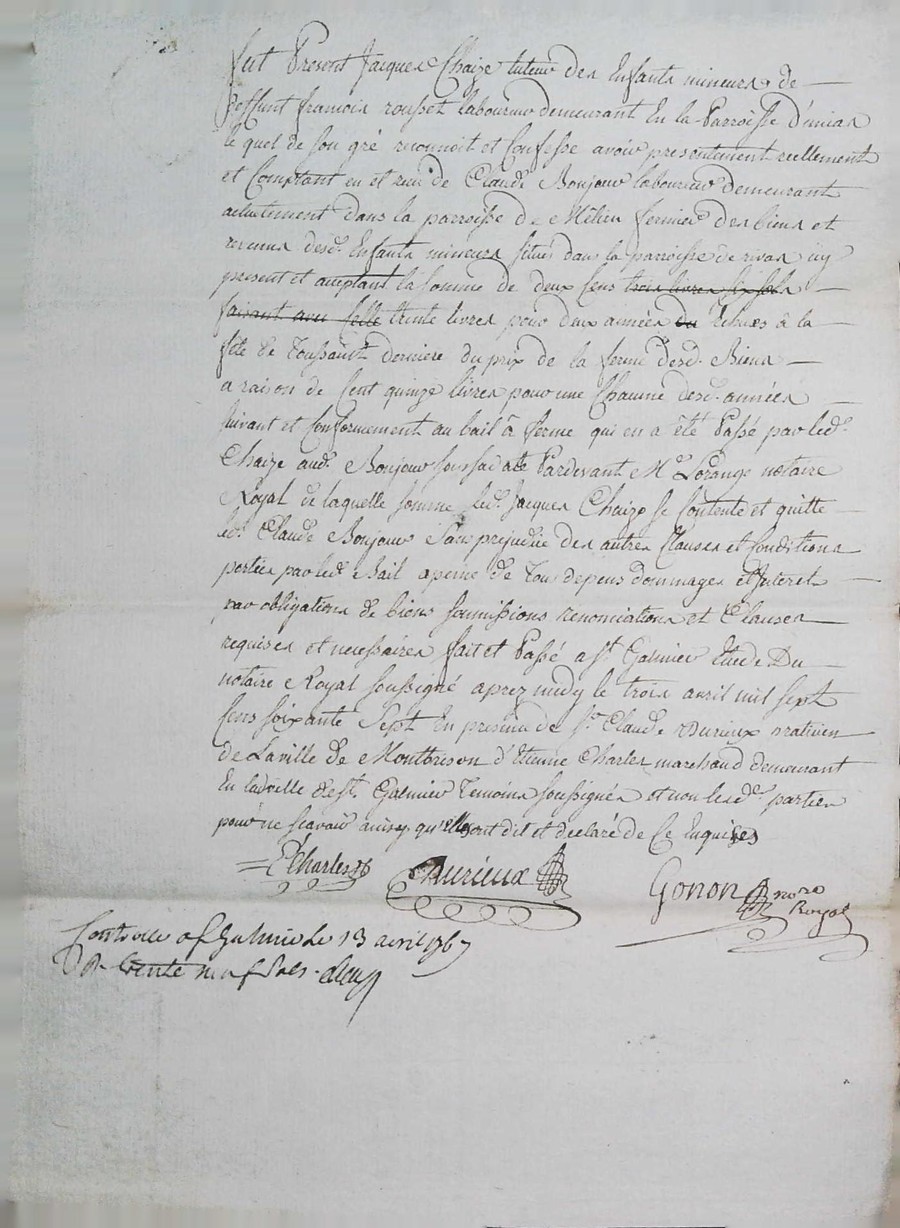 fut Present Jacques Chaize tuteur des Enfants mineurs de
deffunt francois rousset laboureur demeurant En la Parroisse d'unias
le quel de son gré reconnoit et Confesse avoir presentement reellement
et Comptant eu et reçu de Claude Bonjour laboureur demeurant
actuitement dans la parroisse de fermier des biens et
revenus desd. Enfants mineurs situés dans la parroisse de rivas icy
present et acceptant la somme de deux Cens trois livres six sols
faisant avec Celle trente livres pour deux années du Echues à la
fête de Toussaint derniere du prix de la ferme desd. Biens
a raison de Cent quinze livres pour une Chacune desd. années
suivant et Conformement au bail à ferme qui en a été Passé par led.
Chaize aud. Bonjour sous sa datte Pardevant Me. Lorange notaire
Royal de laquelle somme led. Jacques Chaize se Contente et quitte
led. Claude Bonjour Sans prejudice des autres Clauses et Conditions
portées par led. Bail a peine de Tous depens dommages et Interets
par obligations de biens soumissions renonciations et Clauses
requises et necessaires fait et Passé a St. Galmier Etude Du
notaire Royal soussigné aprez midy le trois avril mil sept
Cens soixante Sept En presence de Sr. Claude Durieux praticien
de La ville de Montbrison d'Etienne Charles marchand demeurant
En la ville de St. Galmier Temoins soussignés et non lesd. parties
pour ne scavoir ainsy qu'elles ont dit et declaré de Ce Enquises
ECharles Durieux Gonon nore Royal
Controllé a St Galmier le 13 avril 1767
R. trente neuf sols